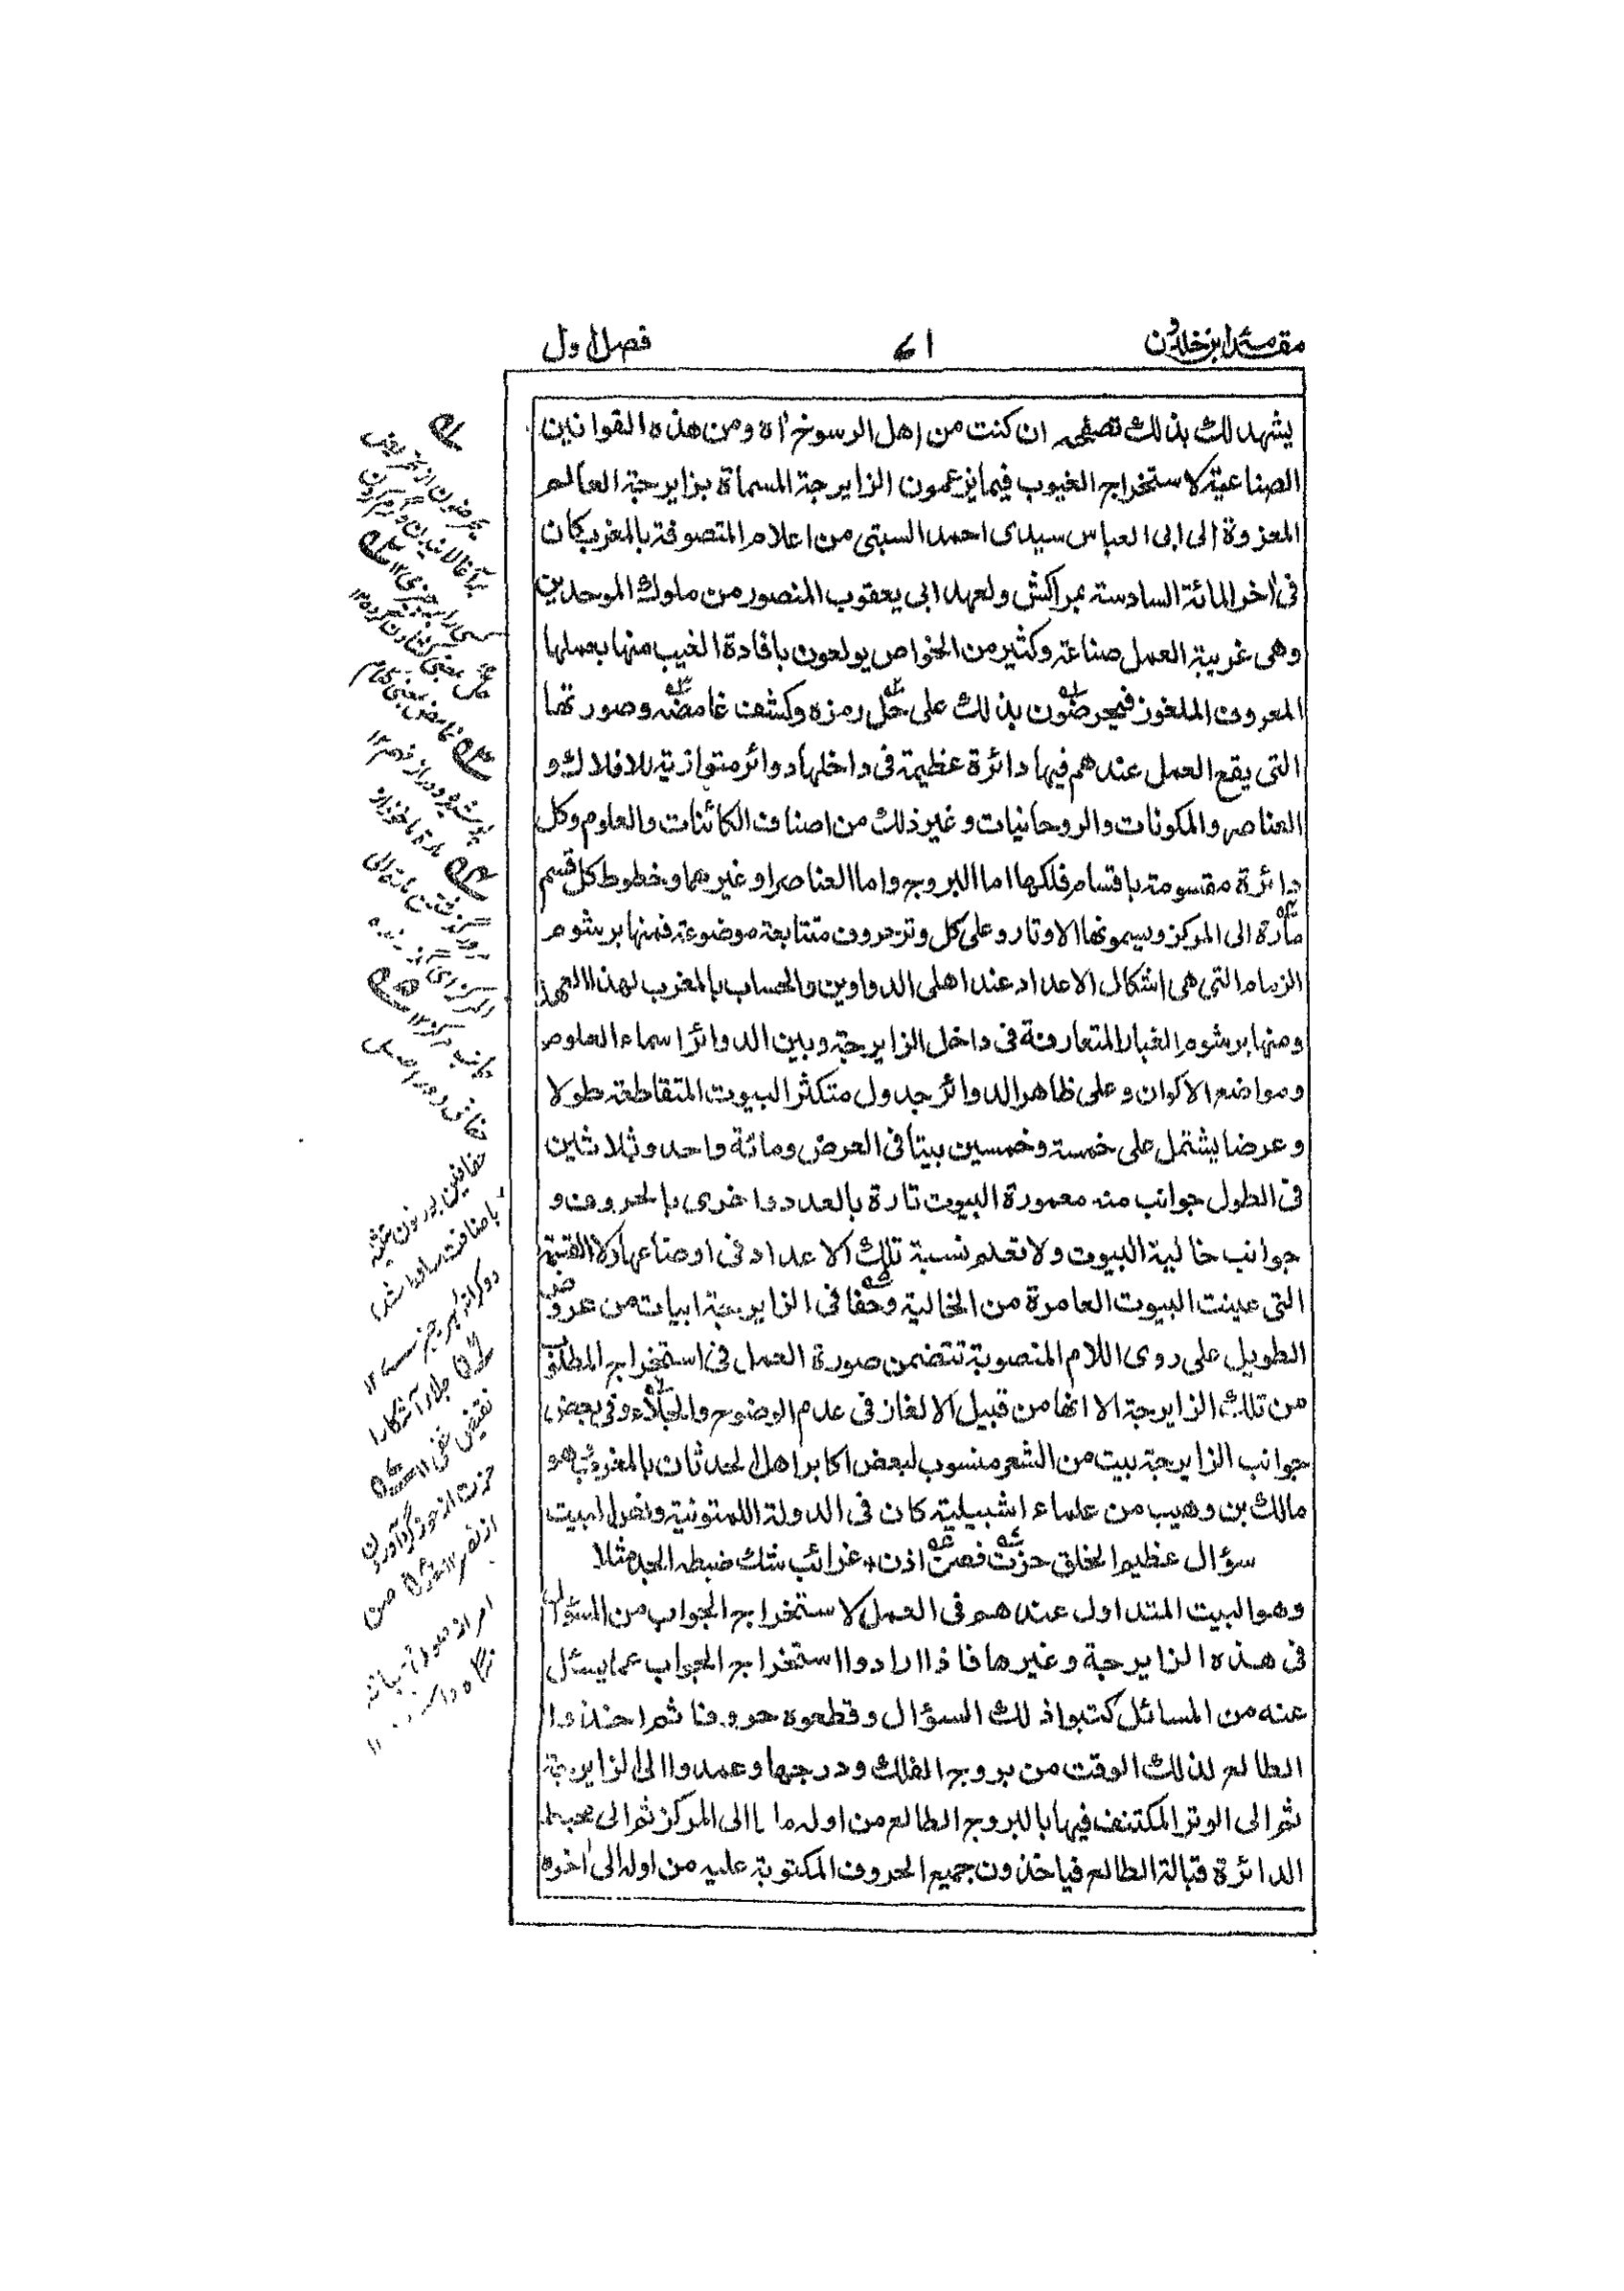 مقدمۂ ابن خلدون
61
فصل اول
يشهد لك بذلك تصفحه ان كنت من اهل الرسوخ اه ومن هذه القوانين
الصناعية لاستخراج الغيوب فيما يزعمون الزايرجة المسماة بزايرجة العالم
المعزوة الى ابى العباس سيدى احمد السبتى من اعلام المتصوفة بالمغرب كان
فى اخر المائة السادسة بمراكش ولعهد ابى يعقوب المنصور من ملوك الموحدين
وهى غريبة العمل صناعة وكثير من الخواص يولعون بافادة الغيب منها بعملها
المعروف الملغوز فيحرضون بذلك على حل رمزه وكشف غامضه وصورتها
التى يقع العمل عندهم فيها دائرة عظيمة فى داخلها دوائر متوازية للافلاك و
العناصر والمكونات والروحانيات وغير ذلك من اصناف الكائنات والعلوم وكل
دائرة مقسومة باقسام فلكها اما البروج واما العناصر او غيرهما وخطوط كل قسم
مارة الى المركز ويسمونها الاوتار وعلى كل وتر حروف متتابعة موضوعة فمنها برشوم
الزمام التى هى اشكال الاعداد عند اهلى الدواوين والحساب بالمغرب لهذا العهد
ومنها برشوم الغبار المتعارفة فى داخل الزايرجة وبين الدوائر اسماء العلوم
ومواضع الاكوان وعلى ظاهر الدوائر جدول متكثر البيوت المتقاطعة طولا
وعرضا يشتمل على خمسة وخمسين بيتا فى العرض ومائة واحد وثلاثين
فى الطول جوانب منه معمورة البيوت تارة بالعدد واخرى بالحروف و
جوانب خالية البيوت ولا تعلم نسبة تلك الاعداد فى اوضاعها ولا القسمة
التى عينت البيوت العامرة من الخالية وحفافى الزايرجة ابيات من عروض
الطويل على روى اللام المنصوبة تتضمن صورة العمل فى استخراج المطلوب
من تلك الزايرجة الا انها من قبيل الالغاز فى عدم الوضوح والجلاء وفى بعض
جوانب الزايرجة بيت من الشعر منسوب لبعض اكابر اهل الحدثان بالمغرب وهو
مالك بن وهيب من علماء اشبيلية كان فى الدولة اللمتونية ونص البيت
سؤال عظيم الخلق حزت فصن اذن + غرائب شك ضبطه الجد مثلا
وهو البيت المتداول عندهم فى العمل لاستخراج الجواب من السؤال
فى هذه الزايرجة وغيرها فاذا ارادوا استخراج الجواب عما يسئل
عنه من المسائل كتبوا ذلك السؤال وقطعوه حروفا ثم اخذوا
الطالع لذلك الوقت من بروج الفلك ودرجها وعمدوا الى الزايرجة
ثم الى الوتر المكتنف فيها بالبروج الطالع من اوله مارا الى المركز ثم الى محيط
الدائرة قبالة الطالع فياخذون جميع الحروف المكتوبة عليه من اوله الى اخره
حفافين بدو نون تثنيه
باضافت ساقط شد
دو كرانۂ هر چيز ١٢
جلاء آشكارا
نقيض خفى